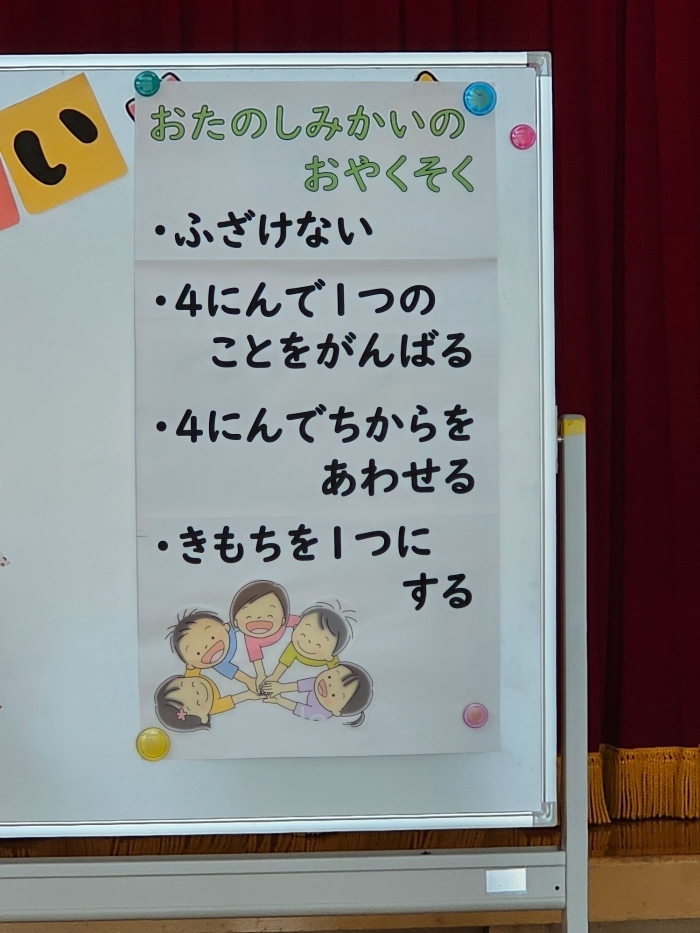 い
おたのしみかいの
おやくそく
・ふざけない
・4にんで1つの
ことをがんばる
・4にんでちからを
あわせる
・きもちを1つに
する